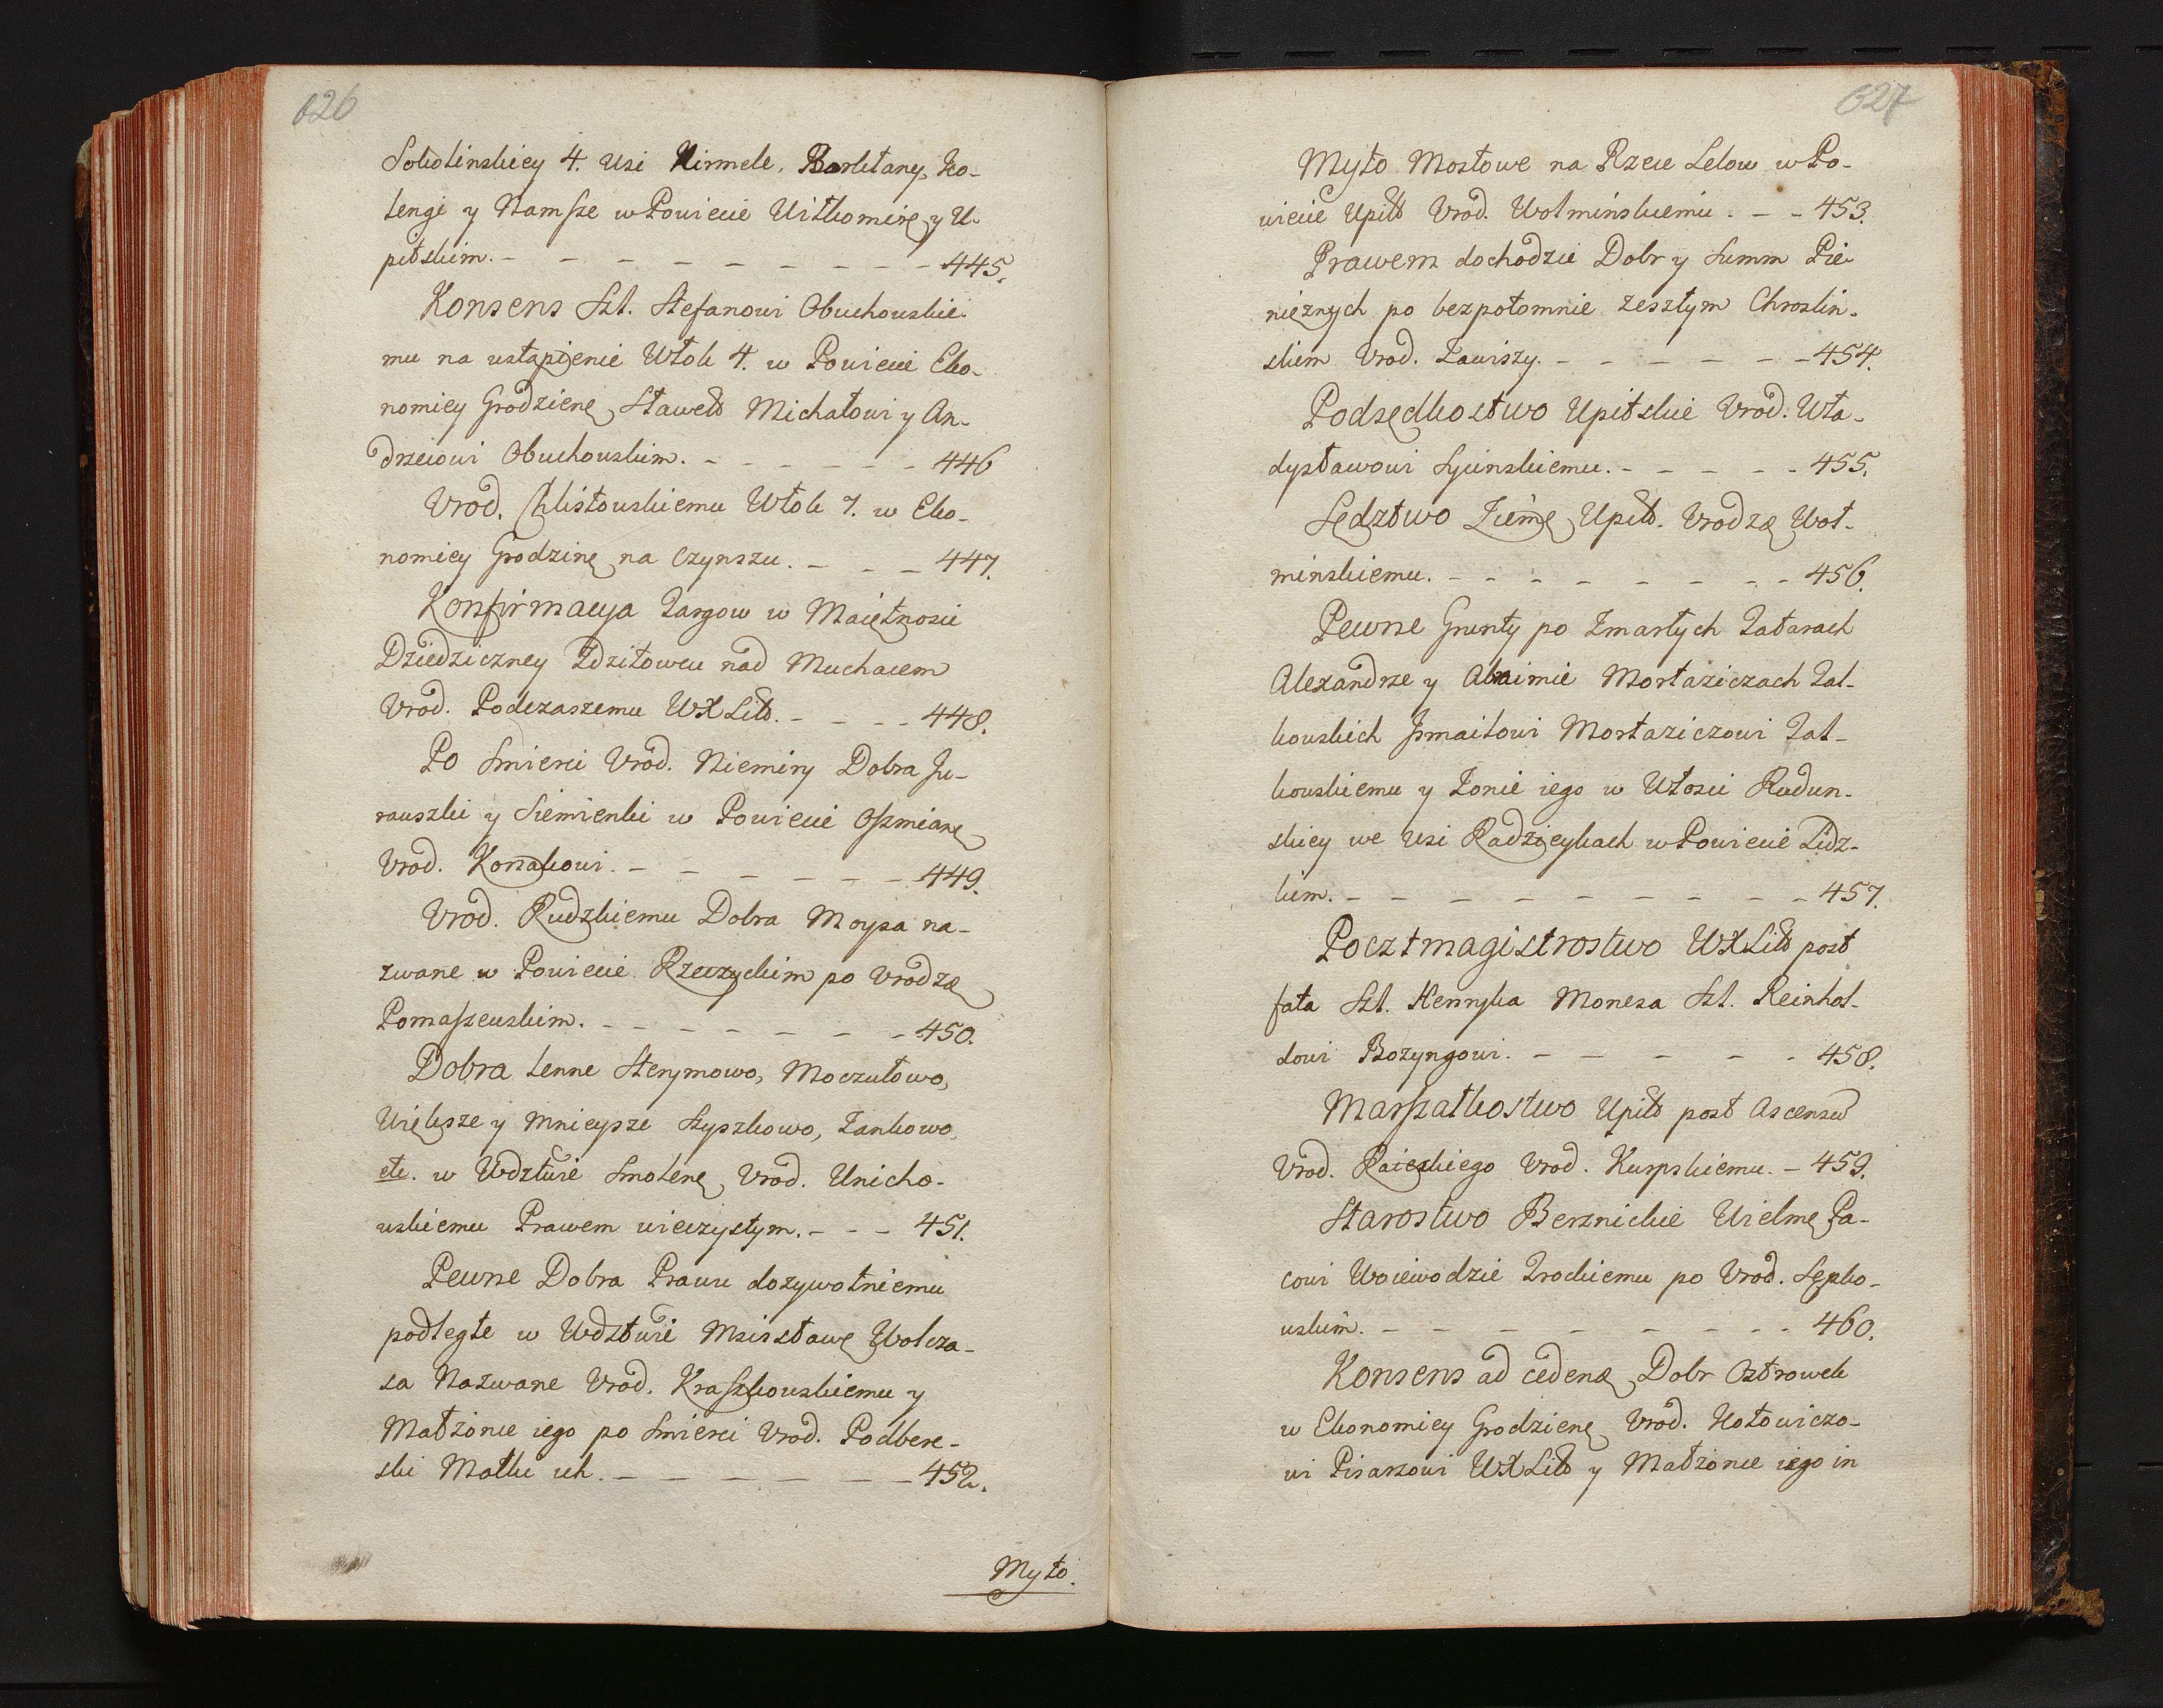 626
Sokolinskiey 4. Wsi Kirmele, Barklany, Ko-
lengi y Namsze w Powiecie Wiłkomirę y U-
pitskim. - - - - - - - - 445.
Konsens Szl. Stefanowi Obuchowskie-
mu na ustąpienie Włok 4. w Powiecie Eko-
nomiey Grodzienę Sławetd Michałowi y An-
drzeiowi Obuchowskim. - - - - - - 446
Vrod. Chlistowskiemu Włok 7. w Eko-
nomiey Grodzinę na Czynszu. - - - 447.
Konfirmacya Targow w Maiętnosci
Dziedziczney Zdzitowcu nad Muchacem
Vrod. Podczaszemu WXLitt. - - - - 448.
Po Smierci Vrod. Niemiry Dobra Ju-
rauszki y Siemienki w Powiecie Oszmianę
Vrod. Konakowi. - - - - - - 449.
Vrod. Rudzkiemu Dobra Moysa na-
zwane w Powiecie Rzeczyckim po Vrodzę
Pomaszewskim. - - - - - - - 450.
Dobra Lenne Sterymowo, Moczułowo,
Większe y Mnieysze Szyszkowo, Zankowo,
etc. w Wdztwie Smolenę Vrod. Unicho-
wskiemu Prawem wieczystym. - - - 451.
Pewne Dobra Prawu dozywotniemu
podległe w Wdztwie Mscisławę Wolcza-
sa Nazwane Vrod. Kraszkowskiemu y
Małżonce iego po Smierci Vrod. Podbere-
ski Matki ich. - - - - - - 452.
Myto.
627
Myto Mostowe na Rzece Lelow w Po-
wiecie Upitt Vrod. Wolmińskiemu. - - 453.
Prawem dochodzic Dobr y Summ Pie-
nięznych po bezpotomnie zeszłym Chroslin-
skiem Vrod. Zawiszy. - - - - - - 454.
Podsędkostwo Upitskie Vrod. Wła-
dysławowi Sycinskiemu. - - - - - 455.
Sędztwo Ziemę Upitt. Vrodzę Wol-
minskiemu. - - - - - - - - 456.
Pewne Grunty po Zmarłych Tatarach
Alexandrze y Abraimie Mortaziczach Tal-
kowskich Jsmailowi Mortaziczowi Tal-
kowskiemu y Zonie iego w Włosci Radun-
skiey we Wsi Radziwykach w Powiecie Lidz-
kim. - - - - - - - - - 457.
Pocztmagistrostwo WXLitt post
fata Szl. Henryka Monesa Szl. Reinhol-
dowi Bozyngowi. - - - - - 458.
Marszałkostwo Upitt post Ascensu
Vrod. Raieckiego Vrod. Kurpskiemu. - 459.
Starostwo Berznickie Wielmę Pa-
cowi Woiewodzie Trockiemu po Vrod. Sępko-
wskim. - - - - - - - - 460.
Konsens ad cedendę Dobr Ostrowek
w Ekonomiey Grodzienę Vrod. Kołowiczo-
wi Pisarzowi WXLitt y Małżonce iego in